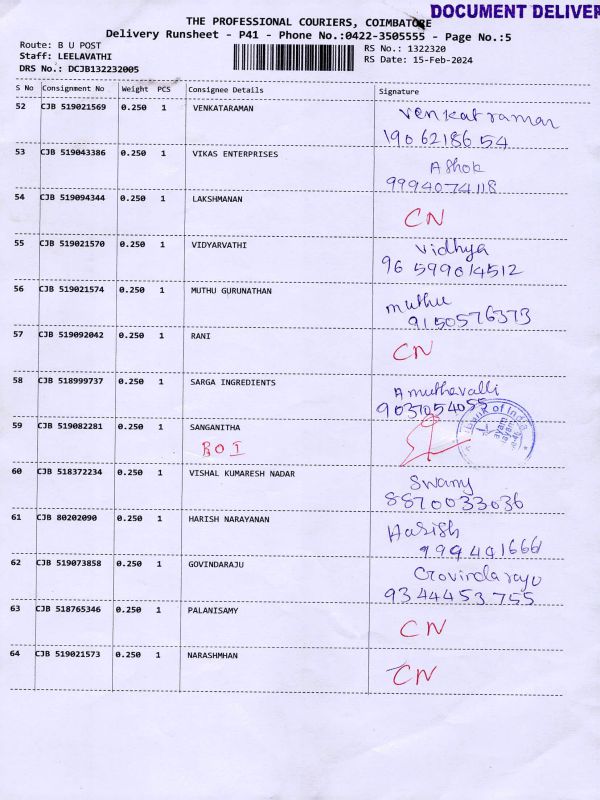 DOCUMENT DELIVER
THE PROFESSIONAL COURIERS, COIMBATORE
Delivery Runsheet - P41 - Phone No.:0422-3505555 - Page No.:5
Route: B U POST
RS No.: 1322320
Staff: LEELAVATHI
RS Date: 15-Feb-2024
DRS No.: DCJB132232005
S No Consignment No Weight PCS Consignee Details Signature
52 CJB 519021569 0.250 1 VENKATARAMAN Venkatraman
19062186 54
53 CJB 519043386 0.250 1 VIKAS ENTERPRISES Ashok
9994074118
54 CJB 519094344 0.250 1 LAKSHMANAN CN
55 CJB 519021570 0.250 1 VIDYARVATHI Vidhya
96 599014512
56 CJB 519021574 0.250 1 MUTHU GURUNATHAN muthu
9150576373
57 CJB 519092042 0.250 1 RANI CN
58 CJB 518999737 0.250 1 SARGA INGREDIENTS Amuthavalli
9037054055
59 CJB 519082281 0.250 1 SANGANITHA
BOI
Bank of India
60 CJB 518372234 0.250 1 VISHAL KUMARESH NADAR Swamy
8870033036
61 CJB 80202090 0.250 1 HARISH NARAYANAN Harish
999491666
62 CJB 519073858 0.250 1 GOVINDARAJU Govindaraju
9344453755
63 CJB 518765346 0.250 1 PALANISAMY CN
64 CJB 519021573 0.250 1 NARASHMHAN CN